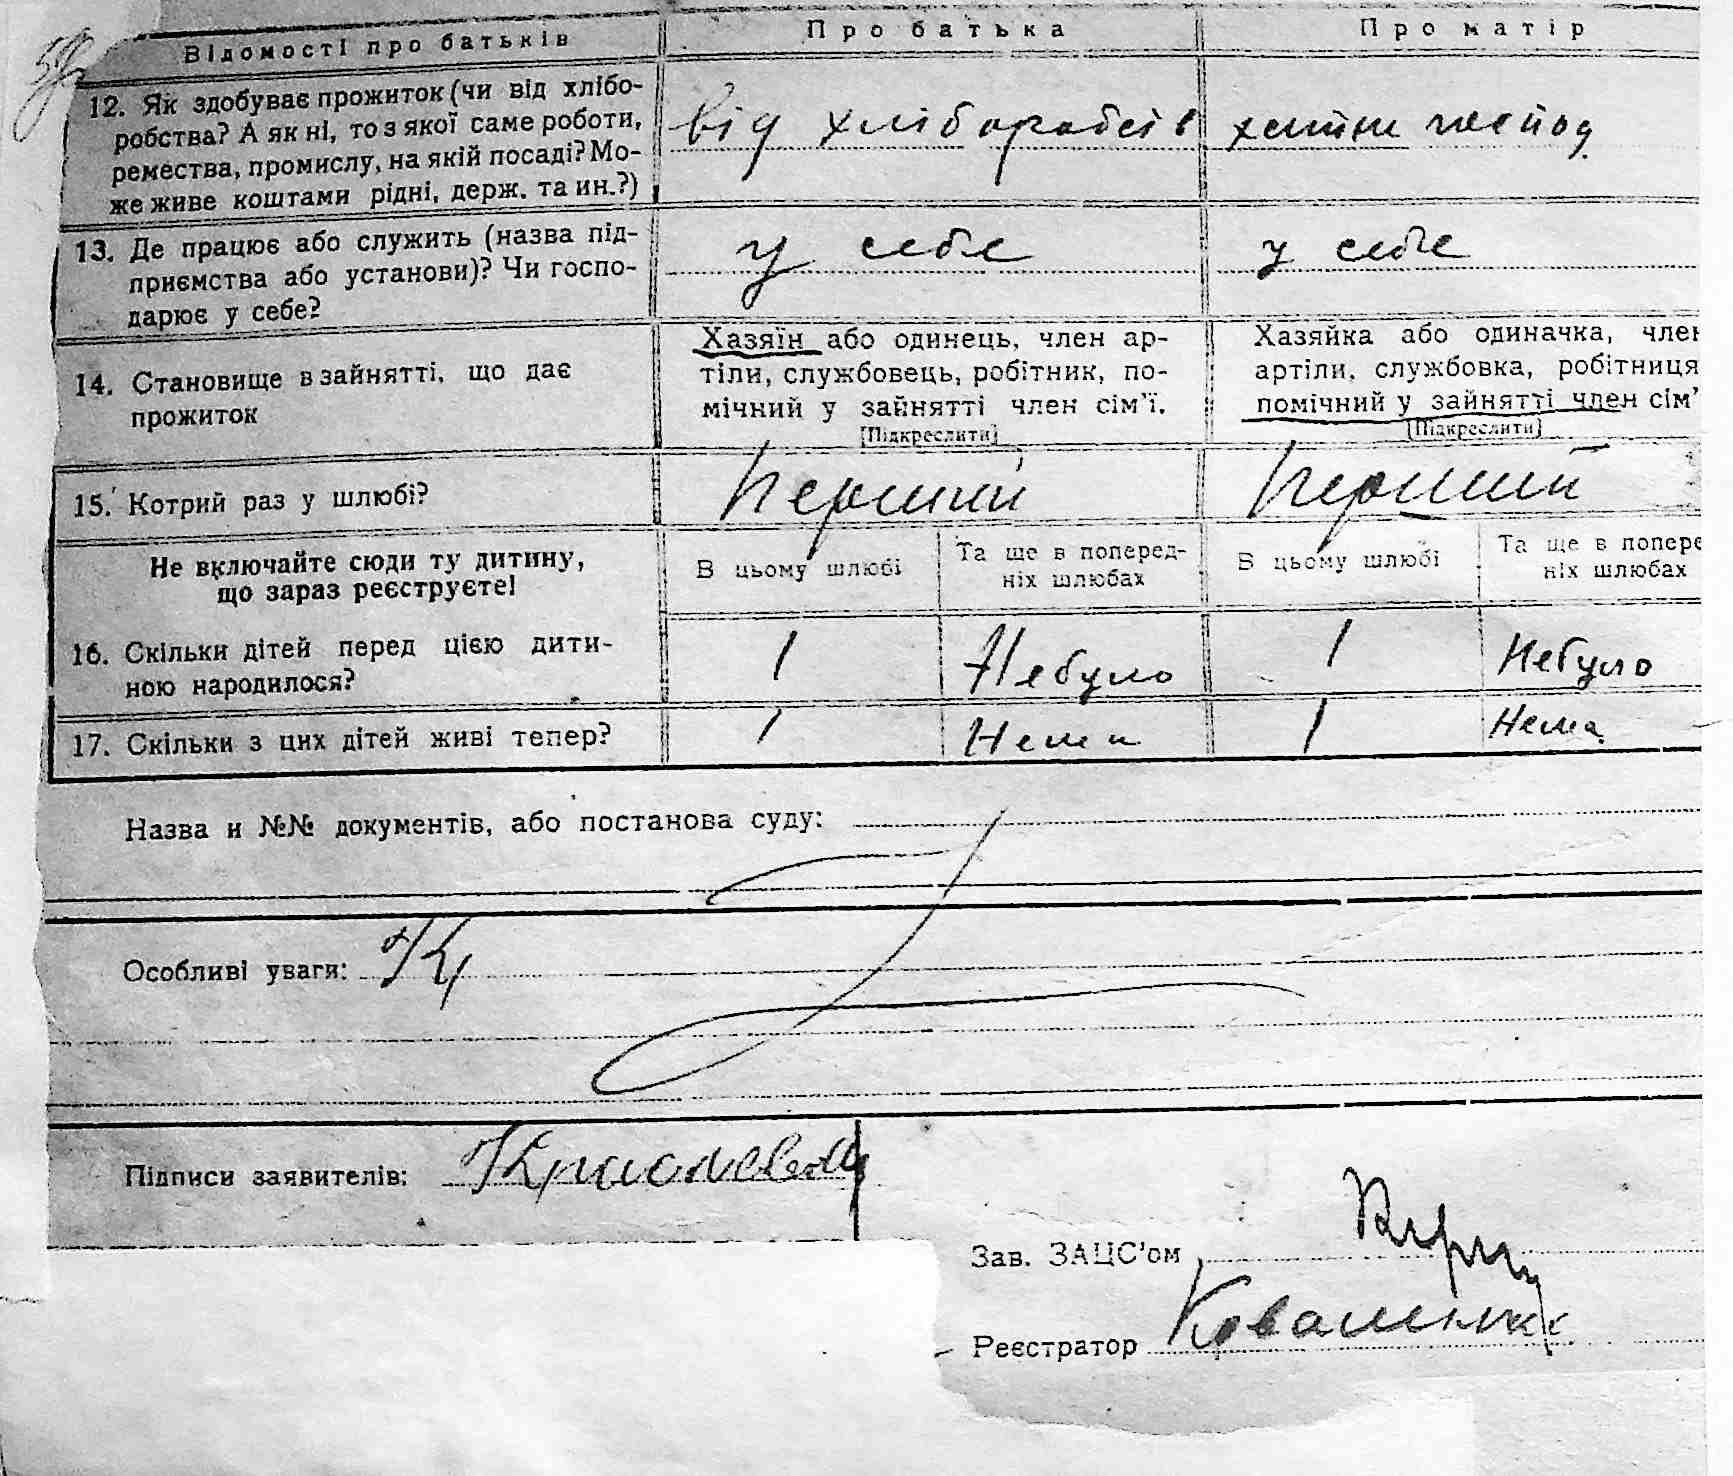 Відомості про батьків Про батька Про матір
12. Як здобуває прожиток (чи від хлібо-
робства? А як ні, то з якої саме роботи,
ремества, промислу, на якій посаді? Мо-
же живе коштами рідні, держ. та ин.?)
від хліборобств хатне господ
13. Де працює або служить (назва під-
приємства або установи)? Чи госпо-
дарює у себе?
у себе у себе
14. Становище в зайнятті, що дає
прожиток
Хазяїн або одинець, член ар-
тіли, службовець, робітник, по-
мічний у зайнятті член сім'ї.
[Підкреслити]
Хазяйка або одиначка, член
артіли, службовка, робітниця
помічний у зайнятті член сім'
[Підкреслити]
15. Котрий раз у шлюбі? Перший Перший
Не включайте сюди ту дитину,
що зараз реєструєте!
В цьому шлюбі Та ще в поперед-
ніх шлюбах В цьому шлюбі Та ще в попере
ніх шлюбах
16. Скільки дітей перед цією дити-
ною народилося?
1 Небуло 1 Небуло
17. Скільки з цих дітей живі тепер? 1 Нема 1 Нема
Назва и №№ документів, або постанова суду:
Особливі уваги:
Підписи заявителів:
Зав. ЗАЦС'ом
Реєстратор Коваленко